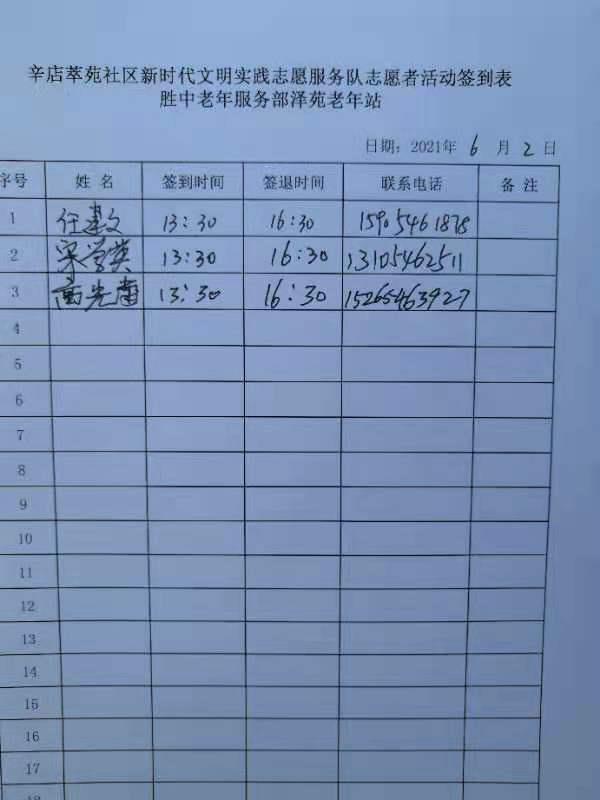 辛店萃苑社区新时代文明实践志愿服务队志愿者活动签到表
胜中老年服务部泽苑老年站
日期：2021年 6 月 2 日
序号 姓 名 签到时间 签退时间 联系电话 备 注
1 任建文 13:30 16:30 15905461878
2 宋学英 13:30 16:30 13105462511
3 高光 13:30 16:30 15265463927
4
5
6
7
8
9
10
11
12
13
14
15
16
17